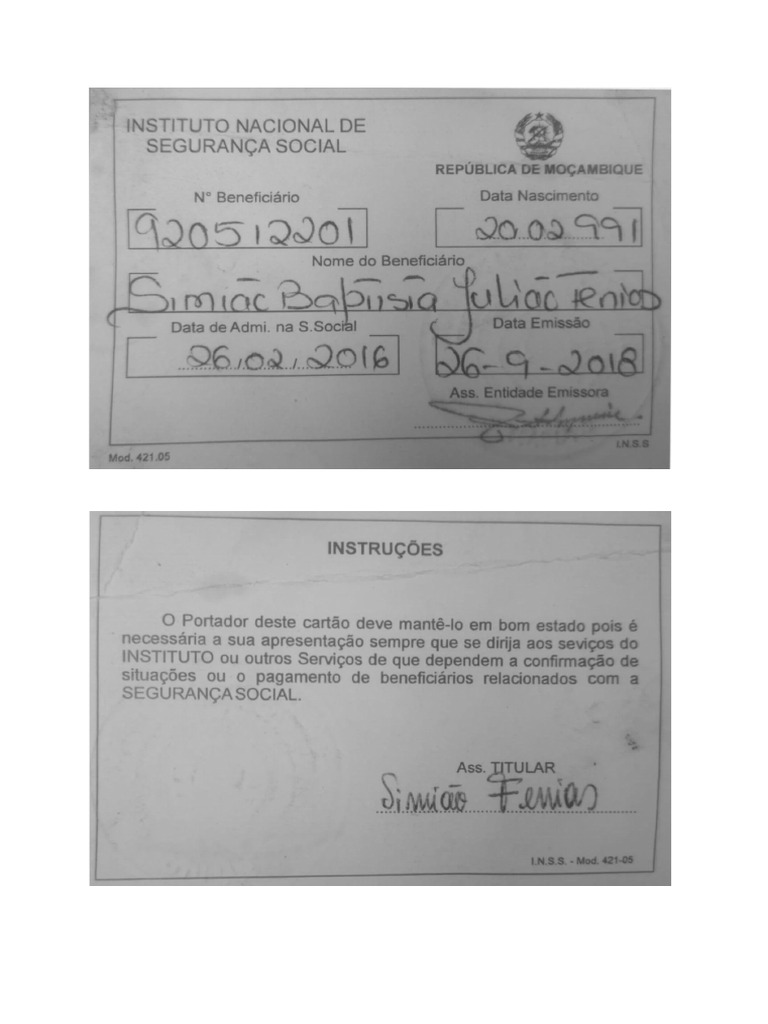 INSTITUTO NACIONAL DE
SEGURANÇA SOCIAL
REPÚBLICA DE MOÇAMBIQUE
N° Beneficiário
Data Nascimento
920512201
20.02.991
Nome do Beneficiário
Simião Baptista Julião Fenias
Data de Admi. na S.Social
Data Emissão
26.02.2016
26-9-2018
Ass. Entidade Emissora
Mod. 421.05
I.N.S.S
INSTRUÇÕES
O Portador deste cartão deve mantê-lo em bom estado pois é
necessária a sua apresentação sempre que se dirija aos seviços do
INSTITUTO ou outros Serviços de que dependem a confirmação de
situações ou o pagamento de beneficiários relacionados com a
SEGURANÇA SOCIAL.
Ass. TITULAR
Simião Fenias
I.N.S.S. - Mod. 421-05